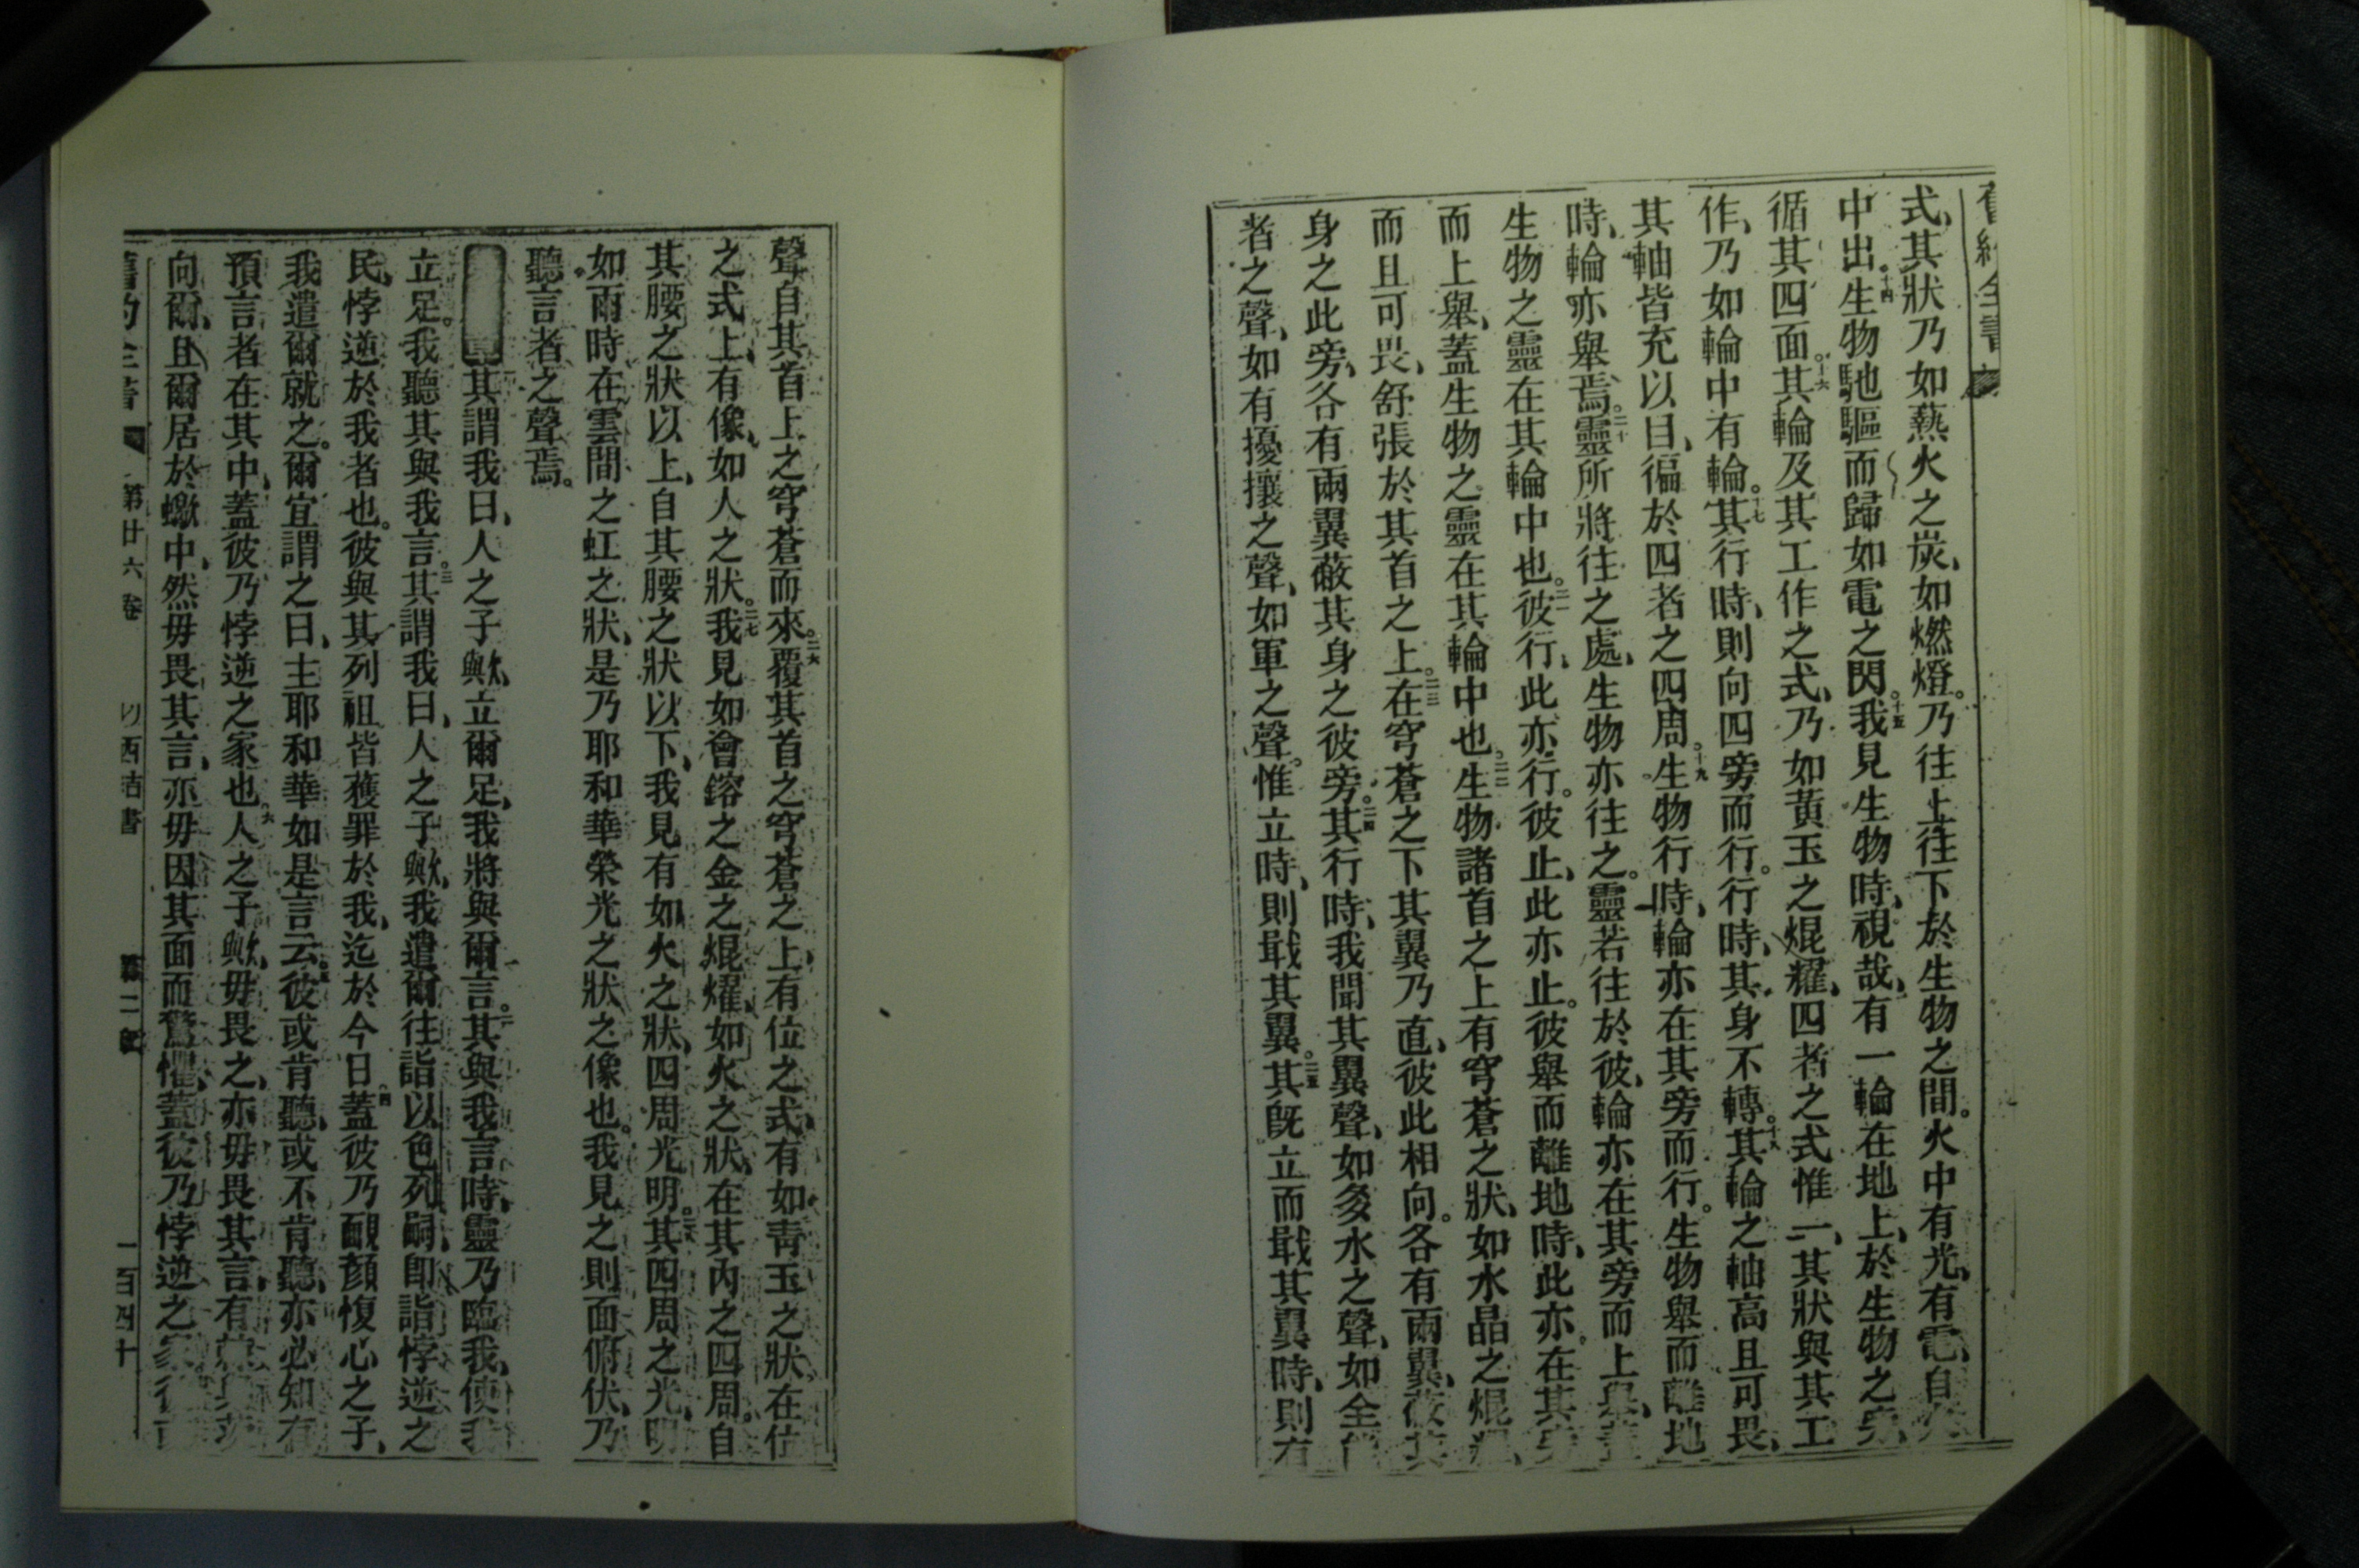 舊約全書
式、其狀乃如爇火之炭、如燃燈。乃往上往下於生物之間。火中有光、有電、自火
中出。十四生物馳驅而歸如電之閃。十五我見生物時、視哉、有一輪在地上、於生物之旁、
循其四面。十六其輪及其工作之式、乃如黃玉之焜耀、四者之式惟一、其狀與其工
作、乃如輪中有輪。十七其行時、則向四旁而行。行時、其身不轉。十八其輪之軸高且可畏、
其軸皆充以目、徧於四者之四周。十九生物行時、輪亦在其旁而行。生物舉而離地
時、輪亦舉焉。二十靈所將往之處、生物亦往之。靈若往於彼、輪亦在其旁而上舉、蓋
生物之靈在其輪中也。二一彼行、此亦行。彼止、此亦止。彼舉而離地時、此亦在其旁
而上舉、蓋生物之靈在其輪中也。二二生物諸首之上有穹蒼之狀、如水晶之焜耀、
而且可畏、舒張於其首之上。二三在穹蒼之下其翼乃直、彼此相向。各有兩翼、蔽其
身之此旁、各有兩翼蔽其身之彼旁。二四其行時、我聞其翼聲、如多水之聲、如全能
者之聲、如有擾攘之聲、如軍之聲。惟立時、則戢其翼。二五其旣立而戢其翼時、則有
聲自其首上之穹蒼而來。二六覆其首之穹蒼之上、有位之式、有如靑玉之狀。在位
之式上、有像、如人之狀。二七我見如會鎔之金之焜耀、如火之狀、在其內之四周。自
其腰之狀以上、自其腰之狀以下、我見有如火之狀、四周光明。二八其四周之光明、
如雨時、在雲間之虹之狀、是乃耶和華榮光之狀之像也。我見之則面俯伏、乃
聽言者之聲焉。
其謂我曰、人之子歟、立爾足、我將與爾言。二其與我言時、靈乃臨我、使我
立足。我聽其與我言。三其謂我曰、人之子歟、我遣爾往詣以色列嗣、卽詣悖逆之
民、悖逆於我者也。彼與其列祖皆獲罪於我、迄於今日。四蓋彼乃靦顏愎心之子、
我遣爾就之。爾宜謂之曰、主耶和華如是言云。五彼或肯聽、或不肯聽、亦必知有
預言者在其中、蓋彼乃悖逆之家也。六人之子歟、毋畏之、亦毋畏其言、有
向爾、且爾居於蠍中、然毋畏其言、亦毋因其面而驚懼、蓋彼乃悖逆之家
舊約全書 第廿六卷 以西結書 第二章 一百四十